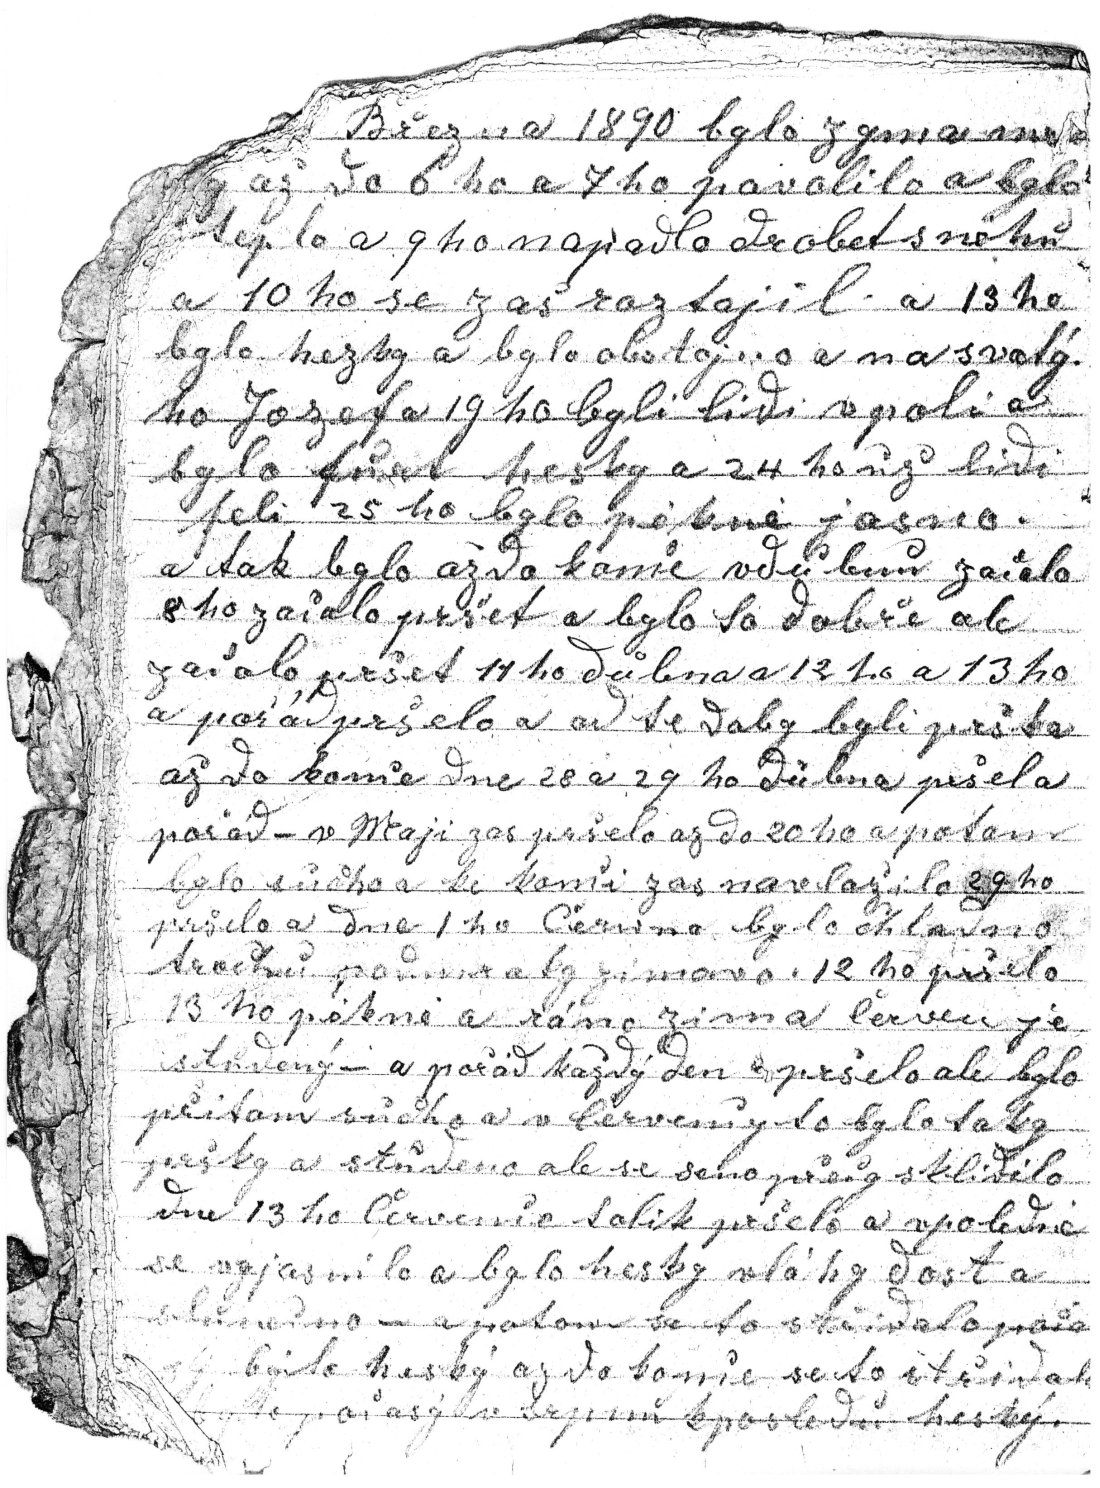 Března 1890 bylo zyma
až do 6 ho a 7 ho povolilo a bylo
teplo a 9 ho napadlo drobet sněhů
a 10 ho se zas roztajil. a 13 ho
bylo hezky a bylo obstojno a na svatý
ho Jozefa 19 ho byli lidi v poli a
bylo fůrt hesky a 24 ho ůž lidi
seli 25 ho bylo pěkně jasno.
a tak bylo až do konce v důbnů začalo
8 ho začalo pršet a bylo to dobře ale
začalo pršet 11 ho důbna a 12 ho a 13 ho
a pořád pršelo a od te doby byli pršta
až do konce dne 28 a 29 ho důbna pršela
pořád – v Maji zas pršelo az do 20 ho a potom
bylo sůcho a ke konci zas navlažilo 29 ho
pršelo a dne 1 ho Června bylo chladno
trochů podmraty zimavo. 12 ho pršelo
13 ho pěkně a ráno zima červen je
stůdený – a pořád každý den pršelo ale bylo
přitom sůcho a v červency to bylo taky
pršky a stůdeno ale se seno přecy sklidilo
dne 13 ho Července tolik pršelo a vpoledně
se vyjasnilo a bylo hesky vláhy dost a
slunečno – a potom se to střidalo poča
sý bylo heský az do konce se to střidal
počasý v srpnů kposledů heský.